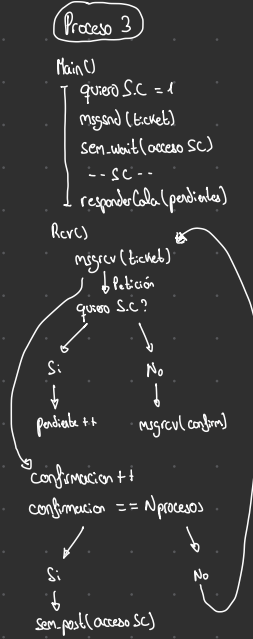 Proceso 3
Main()
quiero S.C = 1
msgsnd (ticket)
sem_wait (acceso SC)
-- SC --
responderCola (pendientes)
Rcv()
msgrcv (ticket)
Petición
quiero S.C?
Si No
pendiente ++ msgrcv (confirm)
confirmacion ++
confirmacion == Nprocesos
Si No
sem_post (acceso SC)